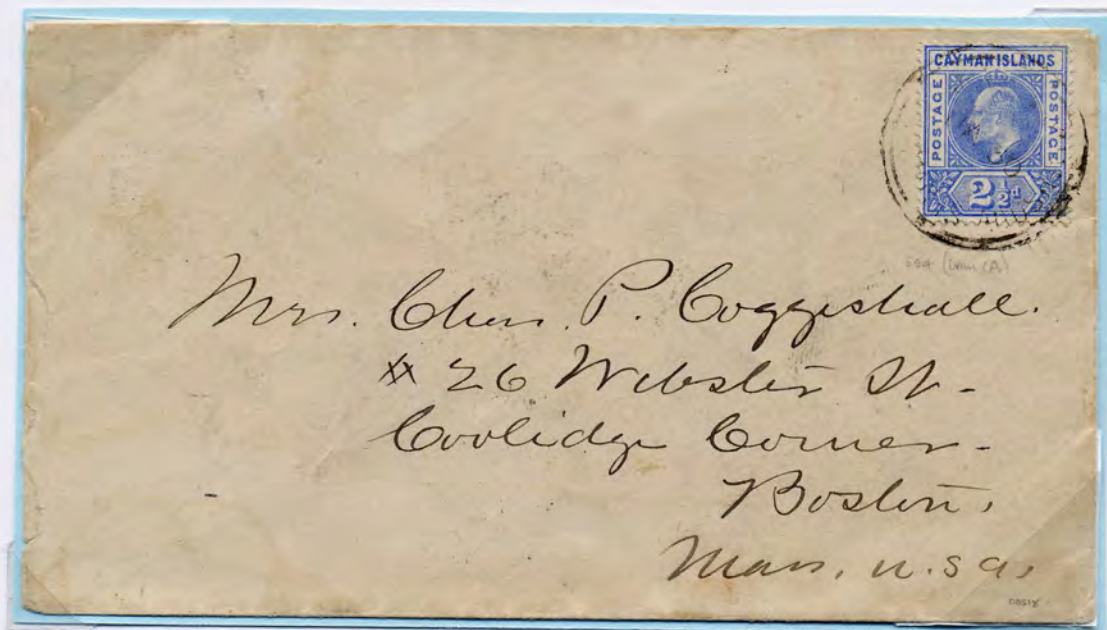 CAYMAN ISLANDS
POSTAGE
POSTAGE
2½d
Mrs. Chas. P. Coggeshall.
# 26 Webster St-
Coolidge Corner-
Boston,
Mass, U.S.A.